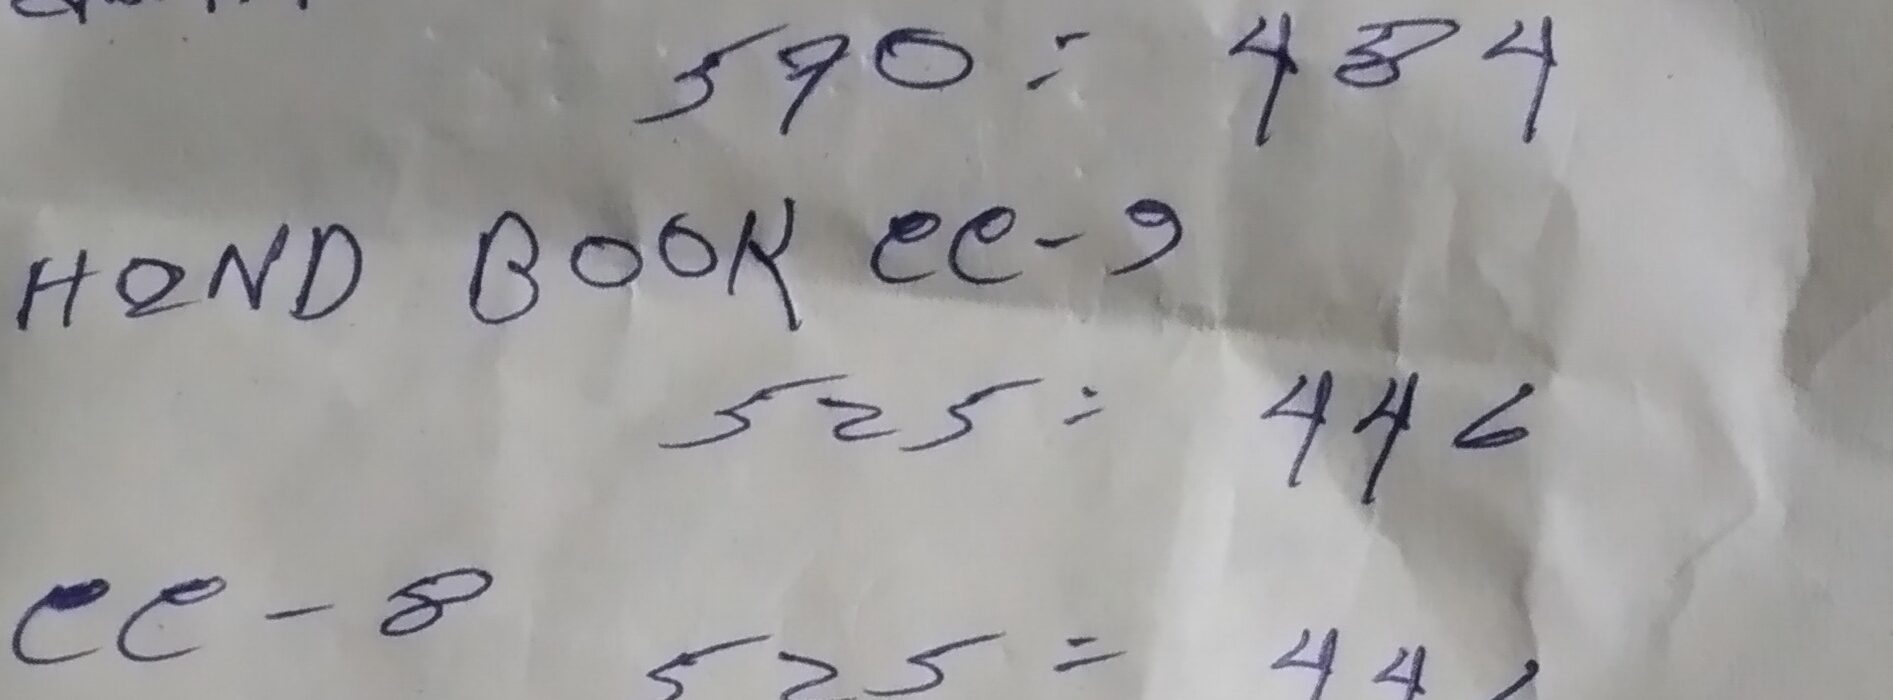 590 = 484
HAND BOOK CC-9
525 = 446
CC-8
525 = 44